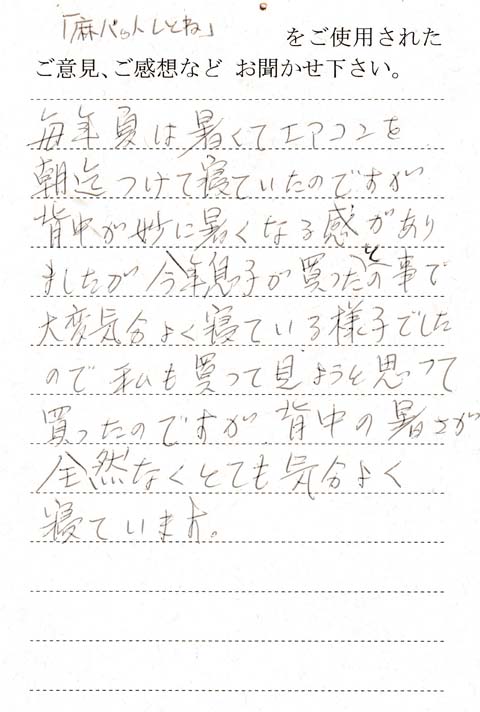 「麻パットしとね」 をご使用された
ご意見、ご感想など お聞かせ下さい。
毎年夏は暑くてエアコンを
朝迄つけて寝ていたのですが
背中が妙に暑くなる感があり
ましたが今年息子が買ったとの事で
大変気分よく寝ている様子でした
ので私も買って見ようと思って
買ったのですが背中の暑さが
全然なくとても気分よく
寝ています。